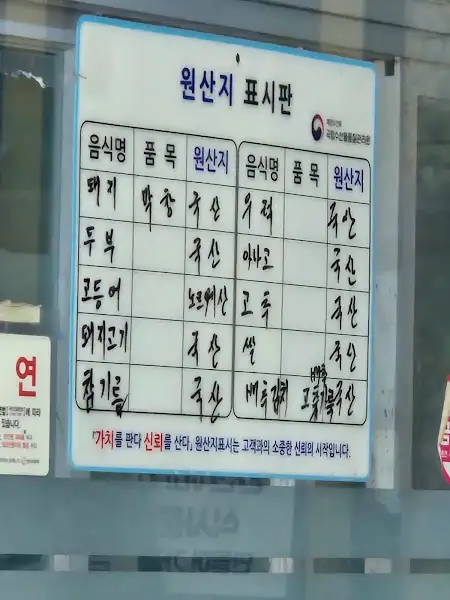 원산지 표시판
해양수산부
국립수산물품질관리원
음식명 품목 원산지 음식명 품목 원산지
돼지 막창 국산 우럭 국산
두부 국산 아나고 국산
고등어 노르웨이산 고추 국산
돼지고기 국산 쌀 국산
참기름 국산 배추김치 배추 고춧가루 국산
「가치를 판다 신뢰를 산다」 원산지표시는 고객과의 소중한 신뢰의 시작입니다.
연